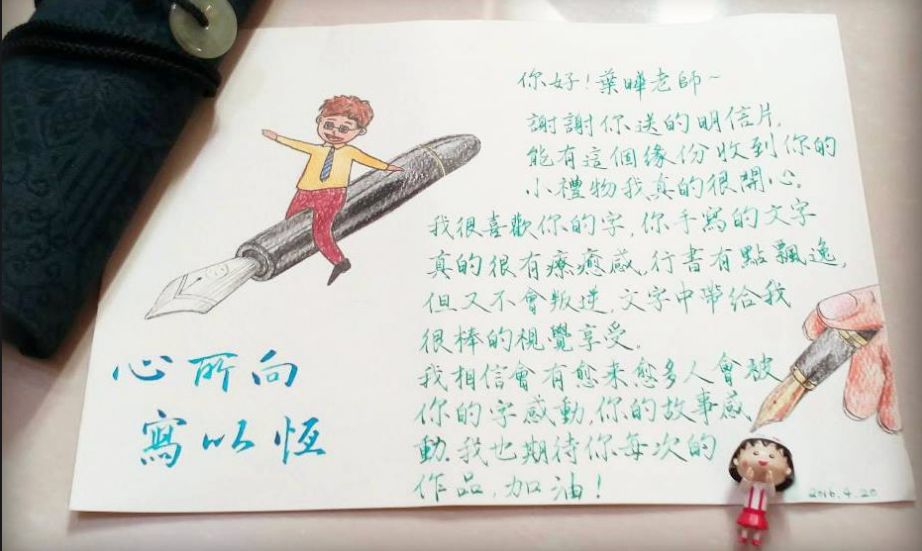 你好!葉曄老師~
謝謝你送的明信片,
能有這個緣份收到你的
小禮物我真的很開心。
我很喜歡你的字,你手寫的文字
真的很有療癒感,行書有點飄逸,
但又不會叛逆,文字中帶給我
很棒的視覺享受。
我相信會有愈来愈多人會被
你的字感動,你的故事感
動.我也期待你每次的
作品,加油!
2016.4.20
心所向
寫以恆